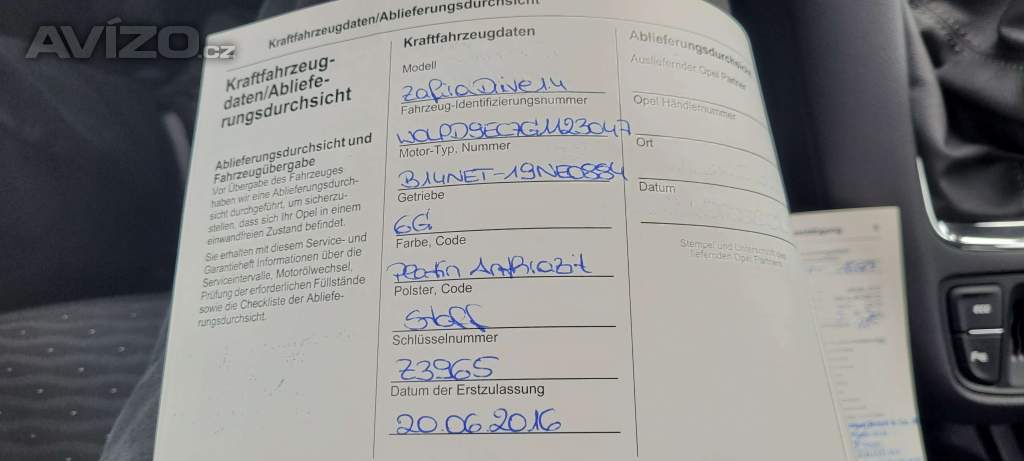 AVÍZO.cz
Kraftfahrzeugdaten/Ablieferungsdurchsicht
Kraftfahrzeug-
daten/Abliefe-
rungsdurchsicht
Ablieferungsdurchsicht und
Fahrzeugübergabe
Vor Übergabe des Fahrzeuges
haben wir eine Ablieferungsdurch-
sicht durchgeführt, um sicherzu-
stellen, dass sich Ihr Opel in einem
einwandfreien Zustand befindet.
Sie erhalten mit diesem Service- und
Garantieheft Informationen über die
Serviceintervalle, Motorölwechsel,
Prüfung der erforderlichen Füllstände
sowie die Checkliste der Abliefe-
rungsdurchsicht.
Kraftfahrzeugdaten
Modell
Zafira Drive 1.4
Fahrzeug-Identifizierungsnummer
W0LPD9EC7G1123047
Motor-Typ, Nummer
B14NET-19NE0884
Getriebe
6G
Farbe, Code
Platin Anthrazit
Polster, Code
Stoff
Schlüsselnummer
Z3965
Datum der Erstzulassung
20.06.2016
Ablieferungsdurchsicht
Ausliefernder Opel Partner
Opel Händlernummer
Ort
Datum
Stempel und Unterschrift des
liefernden Opel Partners